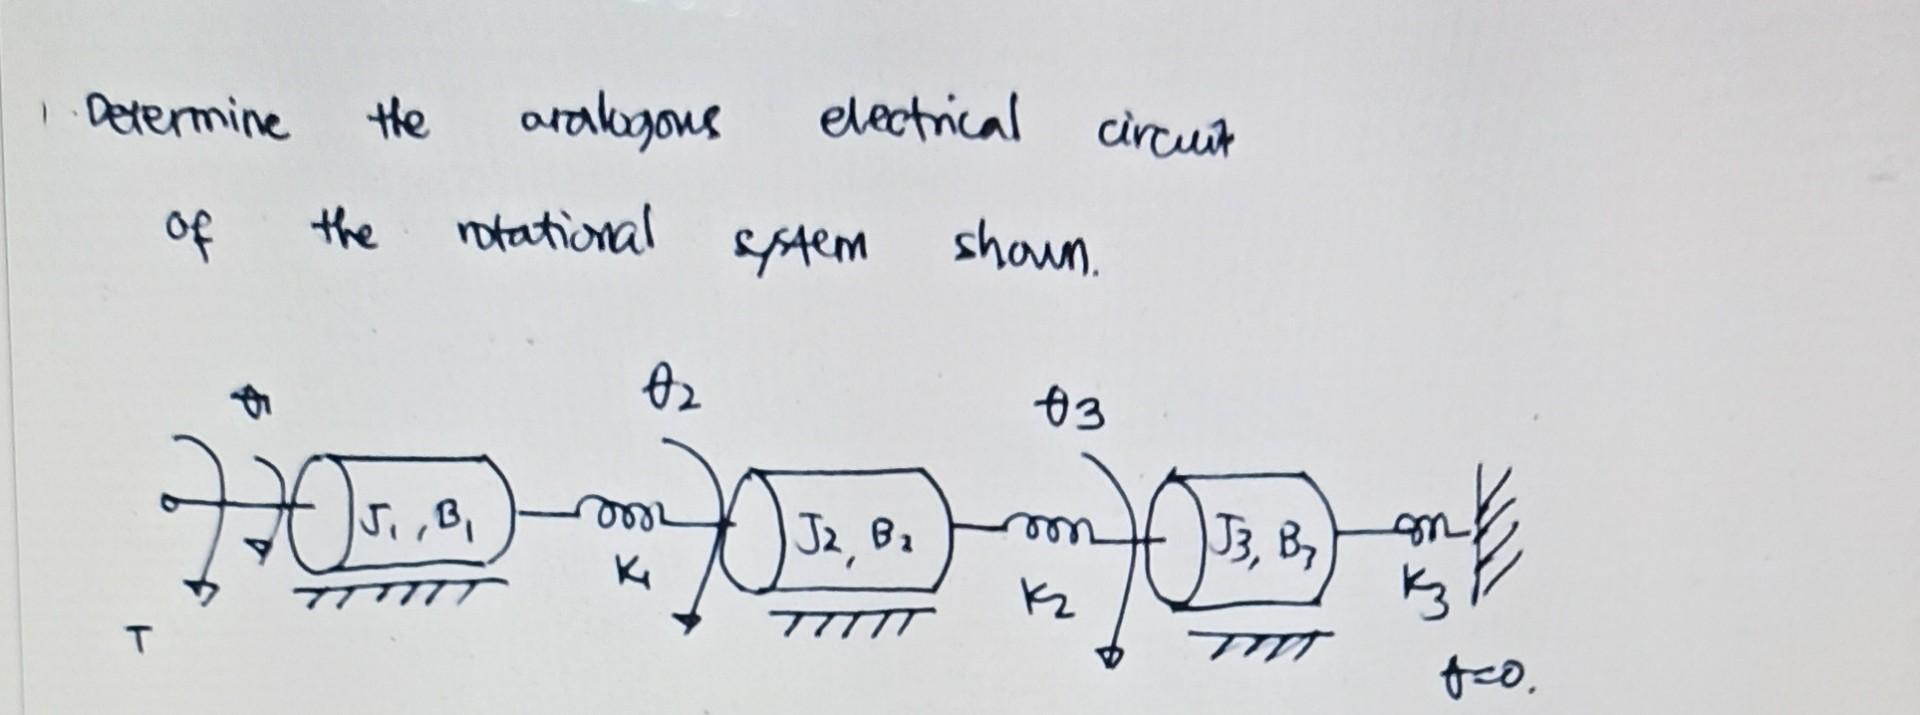 1. Determine the analogous electrical circuit
of the rotational system shown.
θ1 θ2 θ3
J1, B1 J2, B2 J3, B3
K1 K2 K3
T
θ=0.